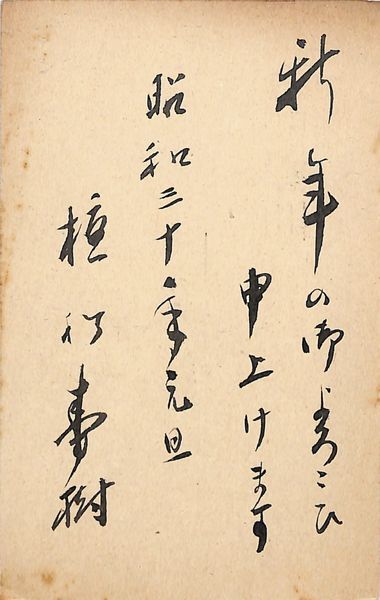 新年の御よろこひ
申上けます
昭和三十年元旦
植松壽樹